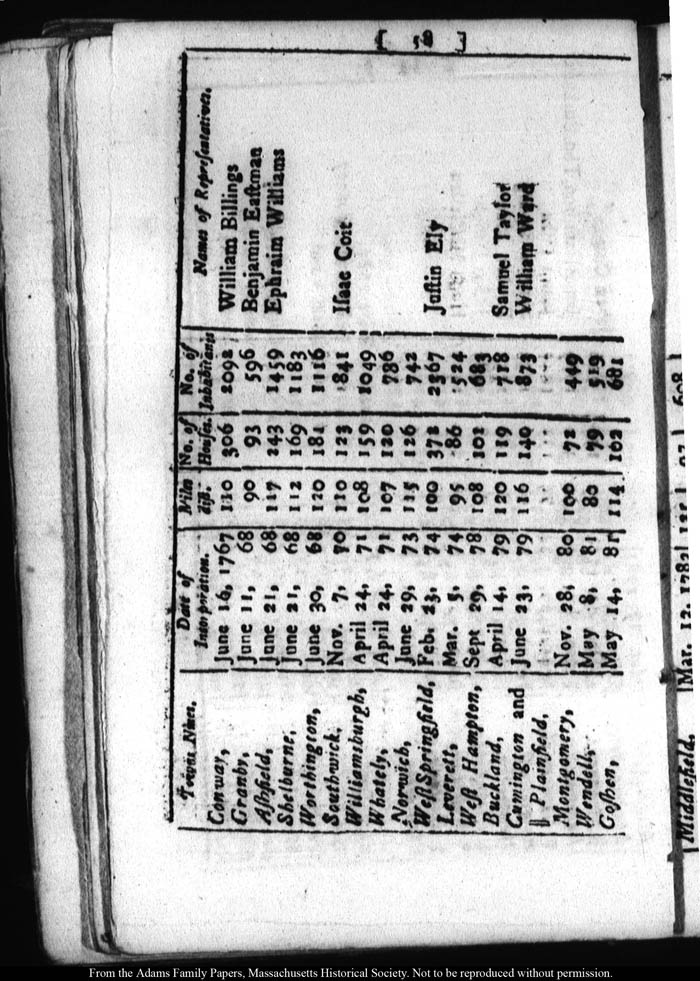 [ 58 ]
Towns Names. | Date of Interporation. | Miles dist. | No. of Houses. | No. of Inhabitants | Names of Representatives.
Conway, | June 16, 1767 | 110 | 306 | 2092 | William Billings
Granby, | June 11, 68 | 90 | 93 | 596 | Benjamin Eaſtman
Aſhfield, | June 21, 68 | 117 | 243 | 1459 | Ephraim Williams
Shelburne, | June 21, 68 | 112 | 169 | 1183
Worthington, | June 30, 68 | 120 | 181 | 1116
Southwick, | Nov. 7, 70 | 110 | 123 | 841 | Iſaac Coit
Williamsburgh, | April 24, 71 | 108 | 159 | 1049
Whately, | April 24, 71 | 107 | 120 | 786
Norwich, | June 29, 73 | 115 | 126 | 742
Weſt Springfield, | Feb. 23, 74 | 100 | 372 | 2367 | Juſtin Ely
Leverett, | Mar. 5, 74 | 95 | 86 | 524
Weſt Hampton, | Sept 29, 78 | 108 | 102 | 683
Buckland, | April 14, 79 | 120 | 119 | 718 | Samuel Taylor
Cumington and | June 23, 79 | 116 | 140 | 873 | William Ward
Plainfield,
Montgomery, | Nov. 28, 80 | 100 | 72 | 449
Wendell, | May 8, 81 | 80 | 79 | 519
Goſhen, | May 14, 81 | 114 | 102 | 681
Middlefield, | Mar. 12, 1783
From the Adams Family Papers, Massachusetts Historical Society. Not to be reproduced without permission.